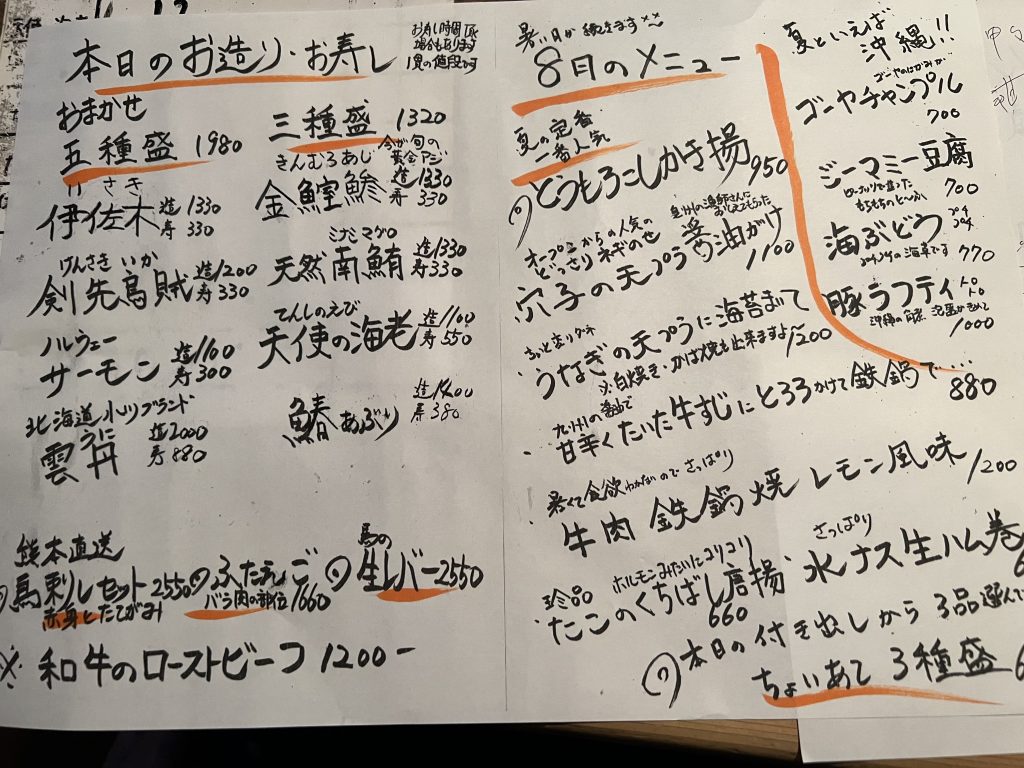 本日のお造り・お寿し
1貫の値段です
おまかせ
五種盛 1980
三種盛 1320
今が旬の
黄金アジ
いさき
伊佐木 造1330
寿330
きんむろあじ
金鰘鯵 造1330
寿330
けんさきいか
剣先烏賊 造1200
寿330
ミナミマグロ
天然南鮪 造1330
寿330
ノルウェー
サーモン 造1100
寿300
てんしのえび
天使の海老 造1100
寿550
北海道小川ブランド
うに
雲丹 造2000
寿880
鰆あぶり 造1200
寿380
熊本直送
馬刺しセット 2550
赤身とたてがみ
ふたえご 1660
バラ肉の部位
馬の
生レバー 2550
※和牛のローストビーフ 1200-
暑い日が続きます
8月のメニュー
夏の定番
一番人気
とうもろこしかき揚 950
オープンからの人気の
どっさりネギのせ
泉州の漁師さんに
おしえてもらった
穴子の天プラ 醤油がけ 1100
うなぎの天プラに海苔まいて 1200
※白焼き・かば焼も出来ますよ
九州の醤油で
甘辛くたいた牛すじにとろろかけて鉄鍋で… 880
暑くて食欲わかないのでさっぱり
牛肉鉄鍋焼 レモン風味 1200
珍品
ホルモンみたいにコリコリ
たこのくちばし唐揚 660
さっぱり
水ナス生ハム巻
本日の付き出しから3品選んで
ちょいあて3種盛
夏といえば
沖縄!!
ゴーヤチャンプル
700
ジーマミー豆腐
もちもちのとうふ 700
海ぶどう プチプチ
海草です 770
豚ラフティ トロトロ
沖縄の角煮 泡盛がきいて
1000